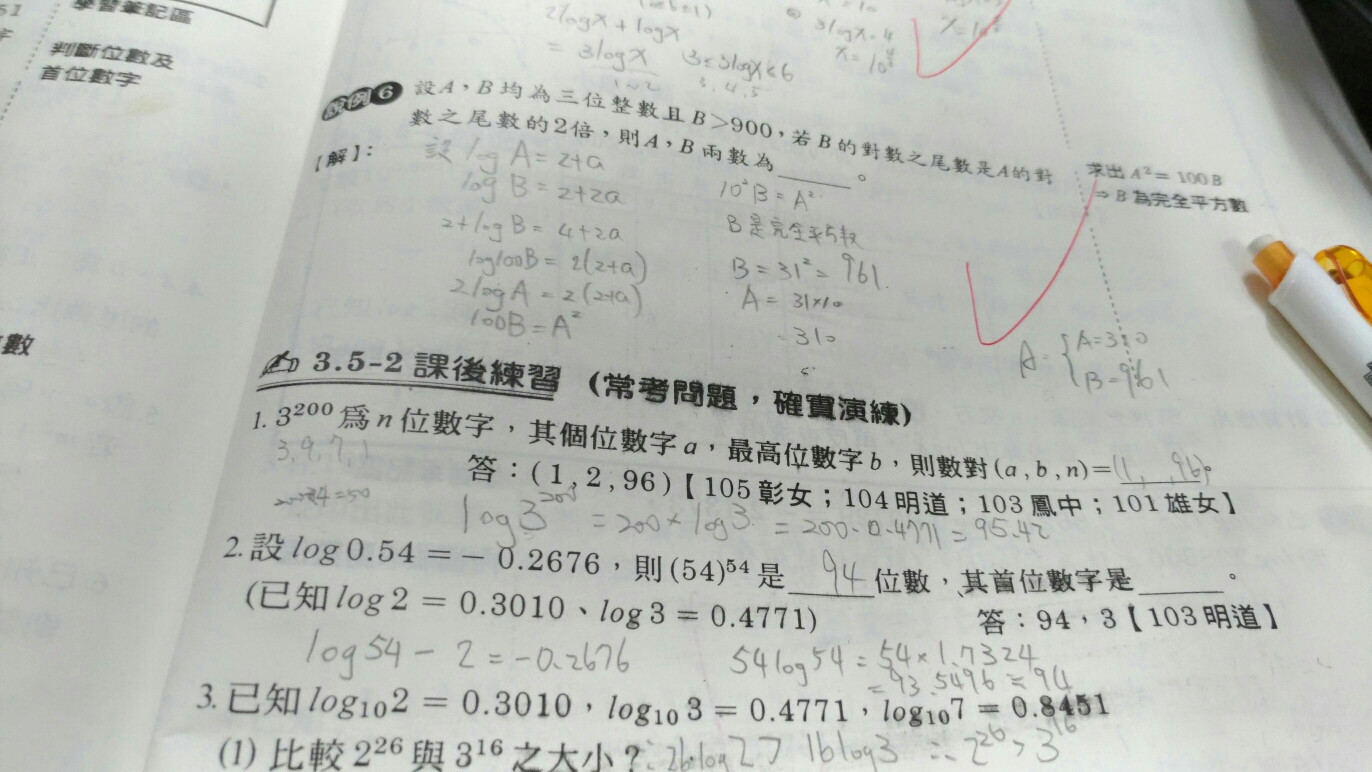 學習筆記區
判斷位數及
首位數字
2logx + logx
= 3logx 3≤3logx<6
3,4,5
3logx=4
說例6 設A,B均為三位整數且B>900,若B的對數之尾數是A的對
數之尾數的2倍,則A,B兩數為______。
【解】:
設 log A = 2+a
log B = 2+2a
2+log B = 4+2a
log100B = 2(2+a)
2logA = 2(2+a)
100B = A²
10²B = A²
B是完全平方數
B = 31² = 961
A = 31×10
= 310
求出A²=100B
⇒B為完全平方數
A = { A=310
B=961
數
3.5-2 課後練習 (常考問題,確實演練)
1. 3²⁰⁰為n位數字,其個位數字a,最高位數字b,則數對(a,b,n)=(1, ,96)。
3,9,7,1
答:(1,2,96)【105彰女;104明道;103鳳中;101雄女】
200÷4=50
log3²⁰⁰ = 200×log3 = 200·0.4771 = 95.42
2. 設log0.54=-0.2676,則(54)⁵⁴是 94 位數,其首位數字是______。
(已知log2=0.3010、log3=0.4771) 答:94,3【103明道】
log54 - 2 = -0.2676
54log54 = 54×1.7324
= 93.5496 ≒ 94
3. 已知log₁₀2=0.3010,log₁₀3=0.4771,log₁₀7=0.8451
(1) 比較2²⁶與3¹⁶之大小? 26log2 > 16log3 ∴ 2²⁶ > 3¹⁶